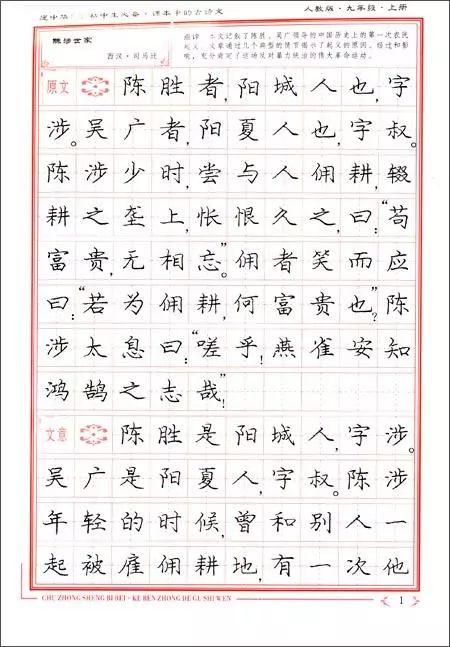 初中生必备·课本中的古诗文
人教版·九年级·上册
陈涉世家
西汉·司马迁
题评:本文记叙了陈胜、吴广领导的中国历史上的第一次农民
起义。文章通过几个典型的情节揭示了起义的原因、经过和影
响,充分肯定了这场反对暴力统治的伟大革命运动。
原文 陈胜者,阳城人也,字
涉。吴广者,阳夏人也,字叔。
陈涉少时,尝与人佣耕,辍
耕之垄上,怅恨久之,曰:“苟
富贵,无相忘。”佣者笑而应
曰:“若为佣耕,何富贵也?”陈
涉太息曰:“嗟乎!燕雀安知
鸿鹄之志哉!”
文意 陈胜是阳城人,字涉。
吴广是阳夏人,字叔。陈涉
年轻的时候,曾和别人一
起被雇佣耕地,有一次他
CHU ZHONG SHENG BI BEI · KE BEN ZHONG DE GU SHI WEN
1